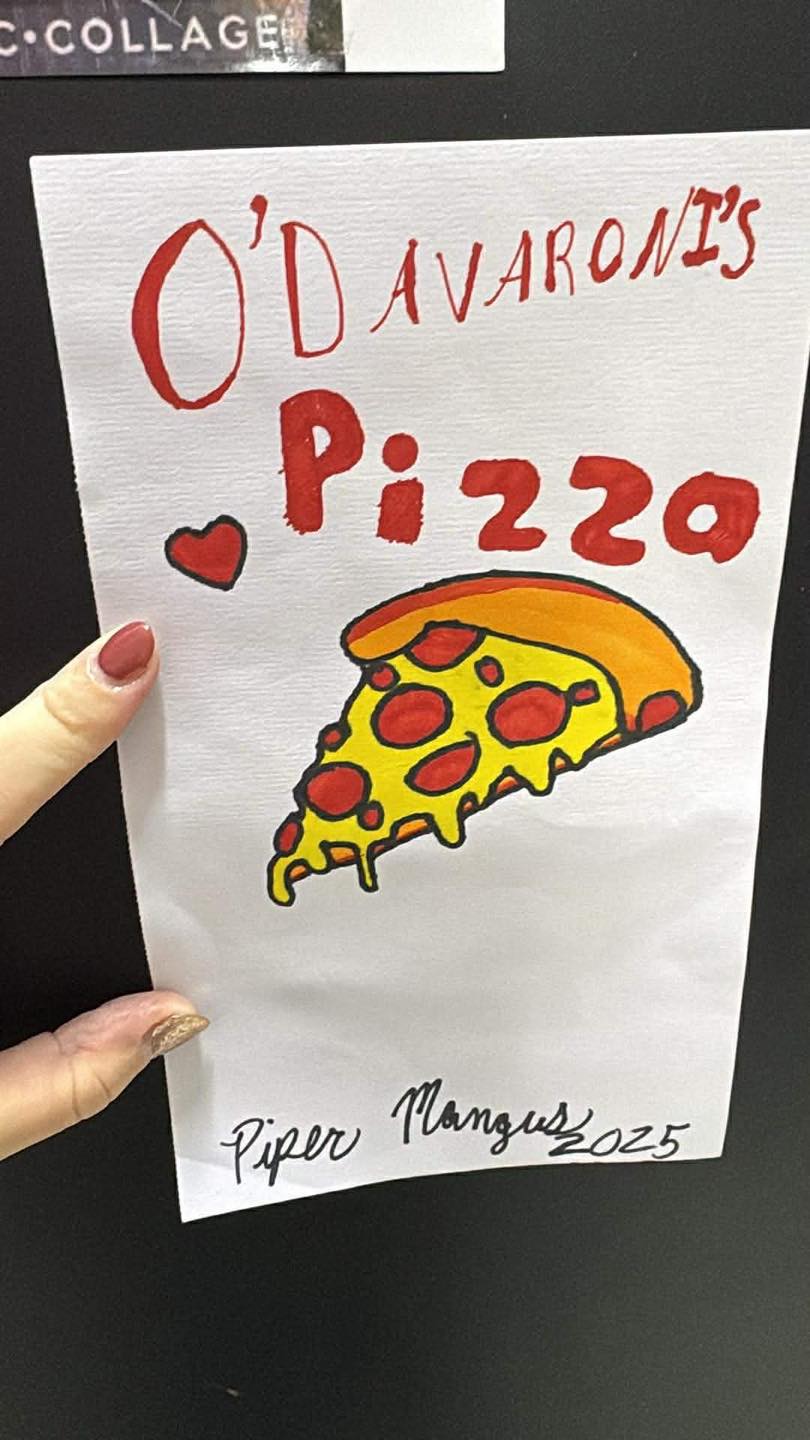 C•COLLAGE
O'DAVARONI'S
Pizza
Piper Mangus 2025